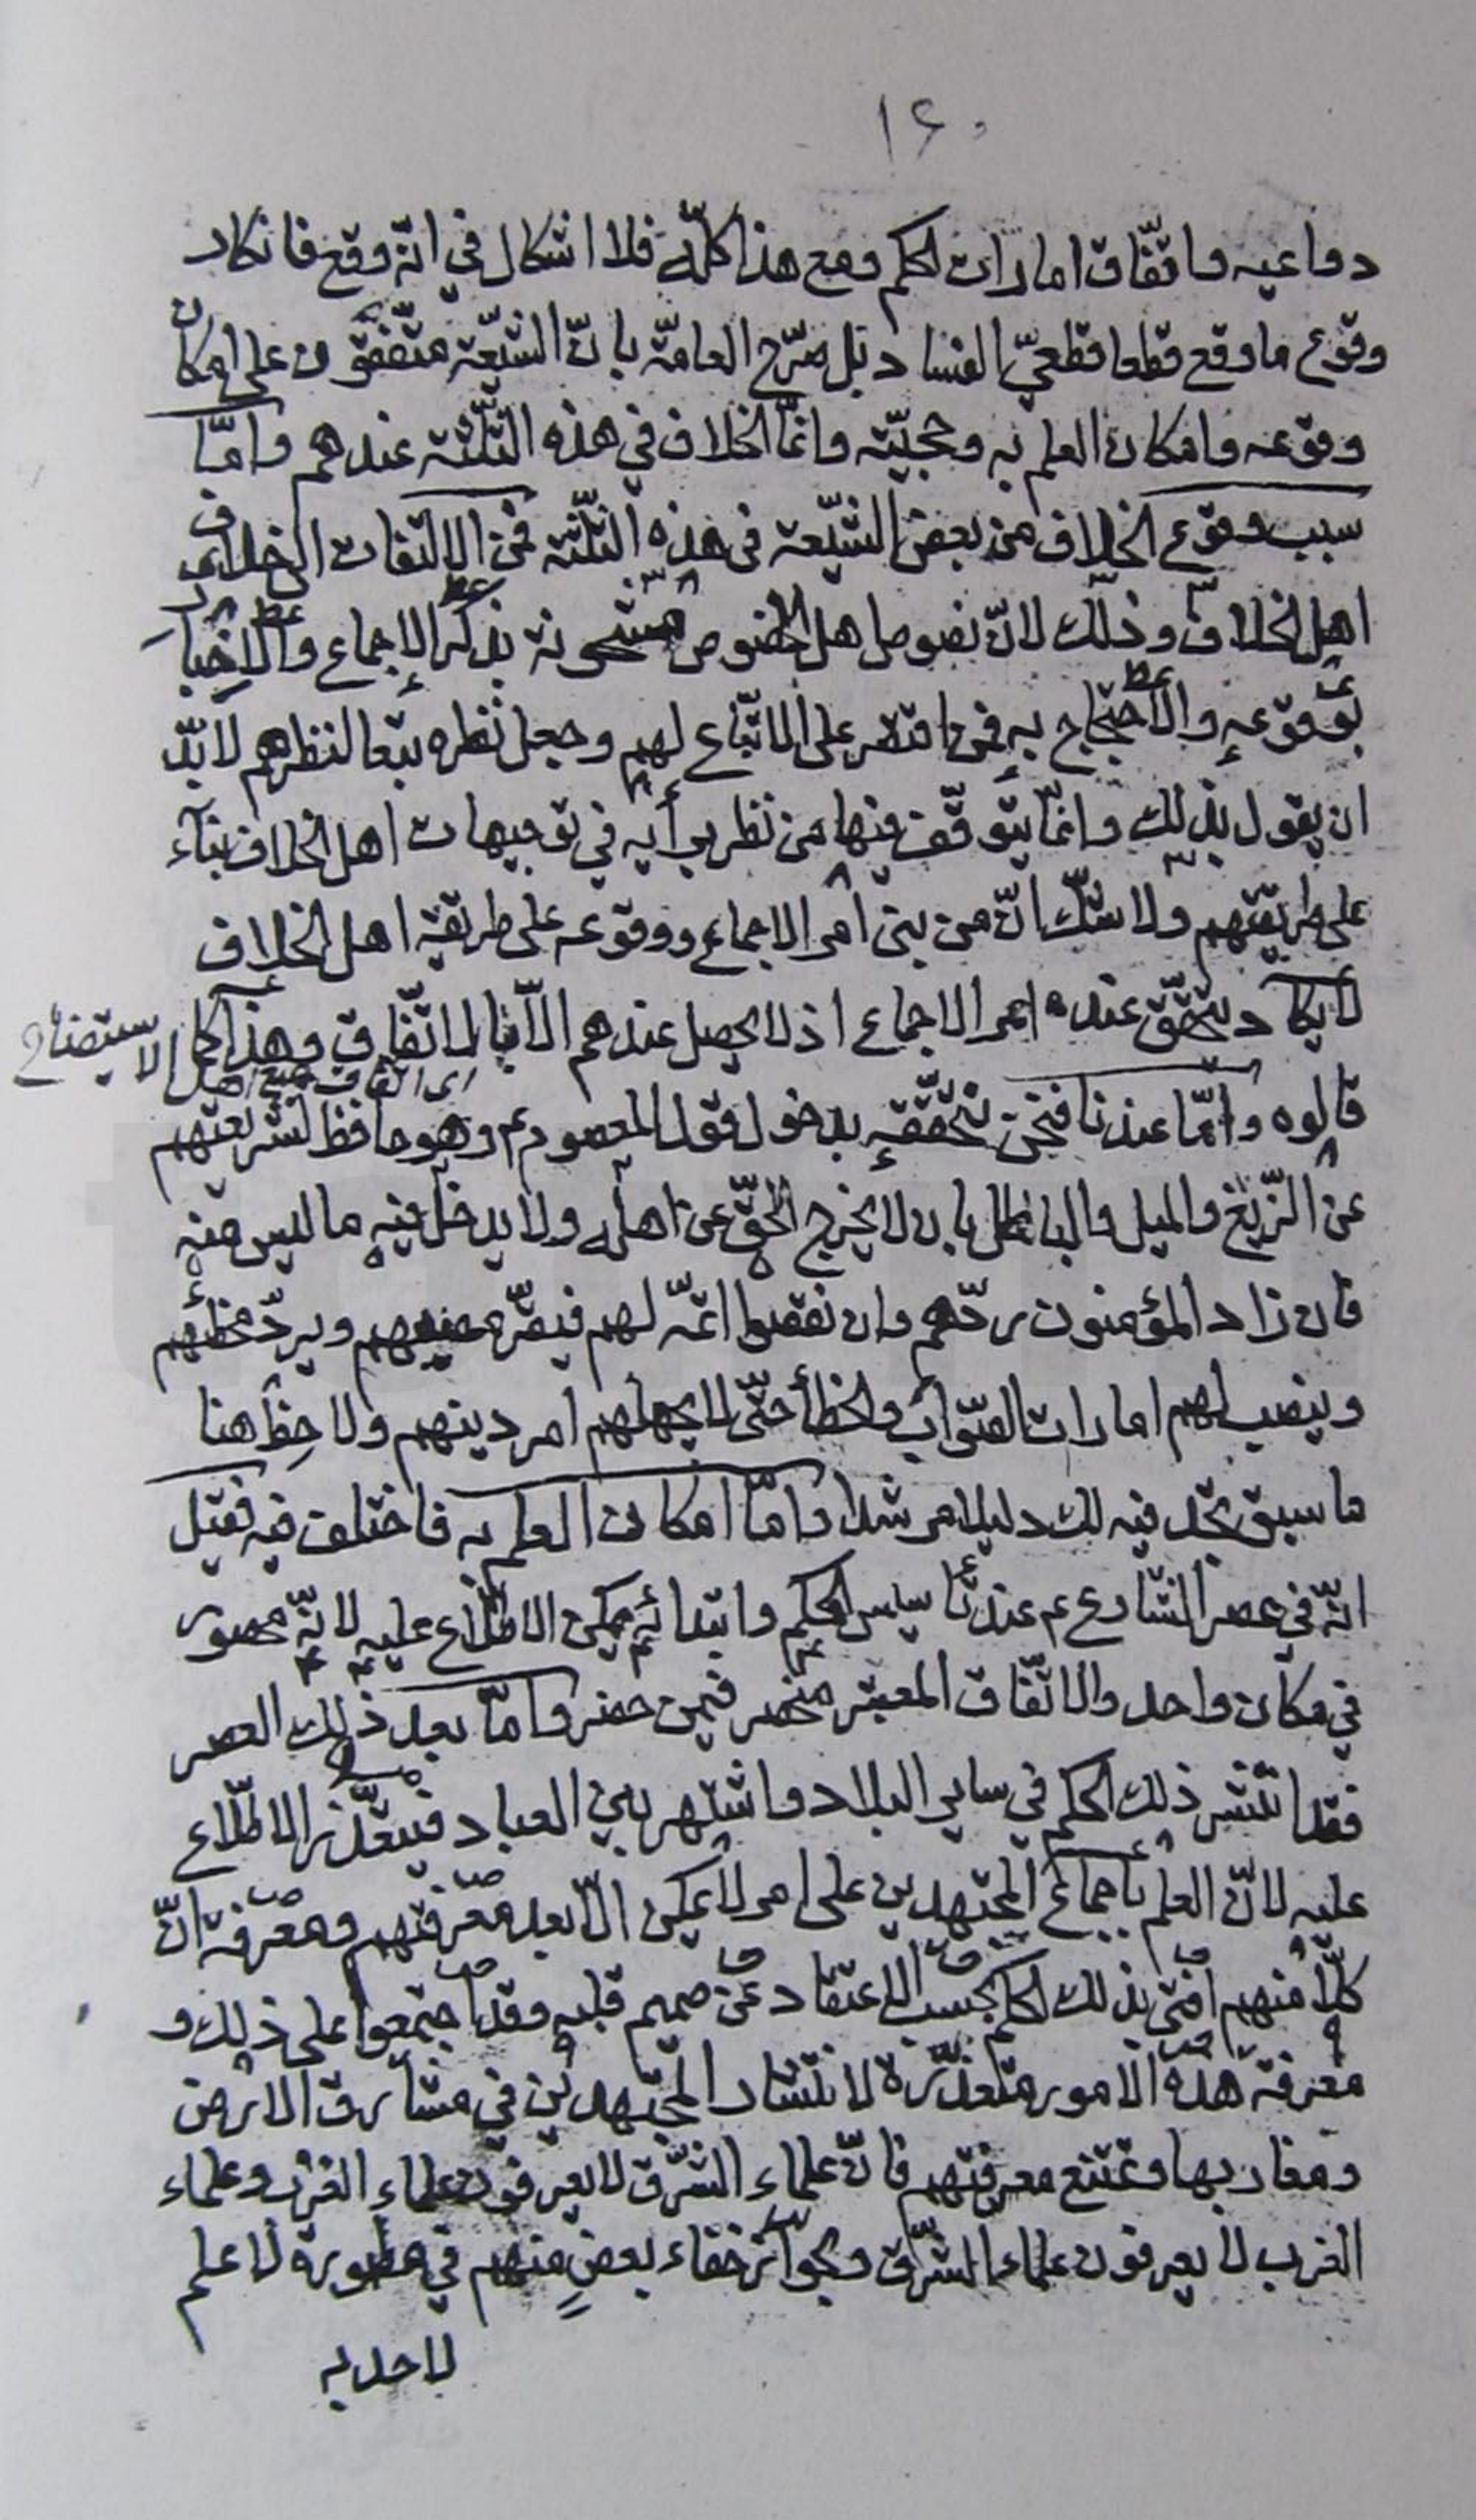 ١۶٠
دواعيه واتّفاق امارات الحكم ومع هذا كلّه فلا اشكال في انّه وقع فانكار
وقوع ما وقع قطعا قطعيّ الفساد بل صرّح العامّة بانّ الشيّعة متّفقون على امكان
وقوعه وامكان العلم به وحجيّته وانمّا الخلاف في هذه الثّلثة عندهم وامّا
سبب وقوع الخلاف من بعض الشيّعة في هذه الثّلثة فمن الالتفات الى خلاف
اهل الخلاف وذلك لانّ نصوص اهل الخصوص مشحونة بذكر الإجماع والاخبار
بوقوعه والاحتجاج به فمن اقتصر على الاتّباع لهم وجعل نظره تبعا لنظرهم لا بدّ
ان يقول بذلك وانمّا يتوقّف فيها من نظر برأيه في توجيهات اهل الخلاف بناء
على طريقتهم ولا شكّ انّ من بنى أمر الاجماع ووقوعه على طريقة اهل الخلاف
لا يكاد يتحقّق عنده امر الاجماع اذ لا يحصل عندهم الّا بالاتّفاق وهذا كما
اى اتفاق جميع اهل الاستيضاح
قالوه وامّا عندنا فنحن نحقّقه بدخول قول المعصوم ع وهو حافظ لشريعتهم
عن الزّيغ والميل والباطل بان لا يخرج الحقّ عن اهله ولا يدخل فيه ما ليس منه
فان زاد المؤمنون ردّهم وان نقصوا اتمّه لهم فيقرّ مصيبهم ويردّ مخطئهم
وينصب لهم امارات الصّواب والخطأ حتّى لا يجهلهم امر دينهم ولاحِظ هنا
ما سبق تجد فيه لك دليلا مرشدا وامّا امكان العلم به فاختلف فيه فقيل
انّه في عصر الشّارع ع عند تأسيس الحكم وابتدائه يمكن الاطّلاع عليه لانّه محصور
في مكان واحد والاتّفاق المعتبر منحصر فيمن حضر وامّا بعد ذلك العصر
فقد انتشر ذلك الحكم في ساير البلاد واشتهر بين العباد فيتعذّر الاطّلاع
عليه لانّ العلم باجماع المجتهدين على امر لا يمكن الّا بعد معرفتهم ومعرفة انّ
كلّا منهم افتى بذلك الحكم بحسب الاعتقاد عن صميم قلبه وقد اجتمعوا على ذلك و
معرفة هذه الامور متعذّرة لانتشار المجتهدين في مشارق الارض
ومغاربها وتمتنع معرفتهم فانّ علماء الشّرق لا يعرفون علماء الغرب وعلماء
الغرب لا يعرفون علماء الشّرق وبجواز خفاء بعضٍ منهم في مطمورة لا علم
لاحد به